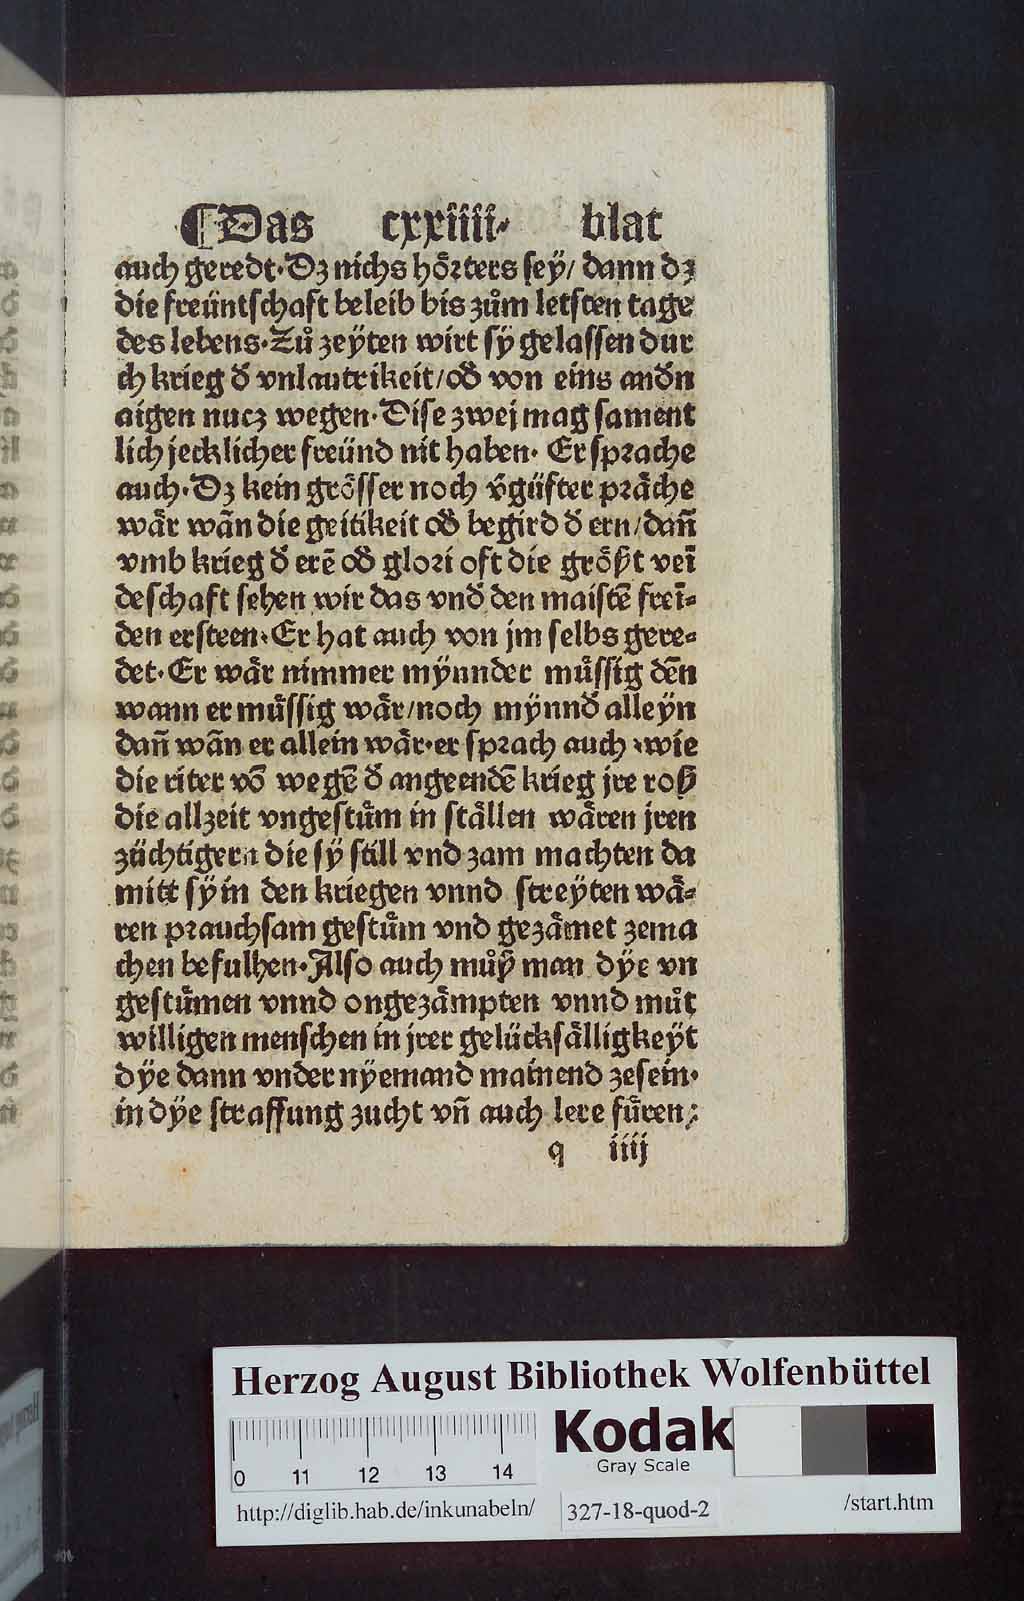 ¶Das cxxiiii· blat
auch geredt·Dz nichs hoͤrters sey/ dann dz
die freüntschaft beleib bis zům letsten tage
des lebens·Zů zeÿten wirt sÿ gelassen dur
ch krieg đ vnlautrikeit/ođ von eins anđn
aigen nucz wegen·Dise zwej mag sament
lich jecklicher freünd nit haben· Er sprache
auch·Dz kein groͤsser noch v̄güfter praͤche
waͤr wān die geitikeit ođ begird đ ern/dan̄
vmb krieg đ erē ođ glori oft die groͤßt veī
deschaft sehen wir das vnđ den maistē freī-
den ersteen·Er hat auch von jm selbs gere-
det·Er waͤr nimmer mÿnnder muͤssig dēn
wann er muͤssig waͤr/noch mÿnnđ alleÿn
dan̄ wān er allein waͤr·er sprach auch ·wie
die riter vō wegē đ angeendē krieg jre roß
die allzeit vngestuͤm in staͤllen waͤren jren
züchtigern die sÿ still vnd zam machten da
mitt sÿ in den kriegen vnnd streÿten waͤ-
ren prauchsam gestuͤm vnd gezaͤmet zema
chen befulhen·Also auch můß man dÿe vn
gestuͤmen vnnd ongezaͤmpten vnnd můt
willigen menschen in jrer gelücksaͤlligkeÿt
dÿe dann vnder nÿemand mainend zesein·
in dÿe straffung zucht vn̄ auch lere fuͤren:
q iiij
Herzog August Bibliothek Wolfenbüttel
0 11 12 13 14
Kodak
Gray Scale
http://diglib.hab.de/inkunabeln/ 327-18-quod-2 /start.htm